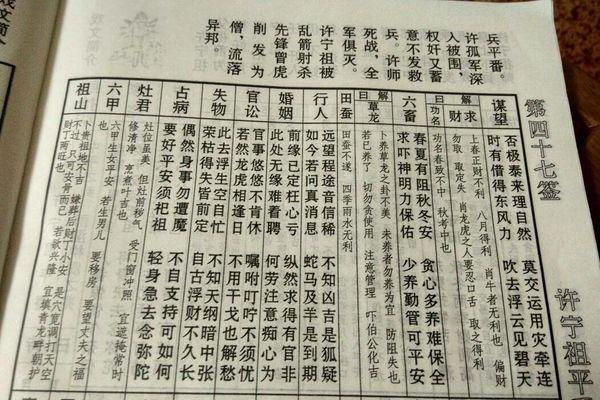 第四十七签
许宁祖平
兵平番。
许孤军深
入被围，
权奸又蓄
意不发救
兵。许师
死战，全
军俱灭。
许宁祖被
乱箭射杀
先锋曾虎
削发为
僧，流落
异邦。
谋望
否极泰来理自然 莫交运用灾牵连
时有借得东风力 吹去浮云见碧天
求财
解曰
上春正财不利 八月得利 肖牛者无利也 偏财
勿取 取定失 肖龙虎之人要忍口舌 取之得利
功名
解曰
功名春致不中 秋考中也
六畜
春夏有阻秋冬安 贪心多养难保全
求吓神明力保佑 少养勤管可平安
草龙
解曰
卜养草龙之卦不美 未养者勿养为宜 防阻失也
若已养了 切勿贪使用 注意管理 吓伯公化吉
田蚕
田蚕不遂 四季雨水无利
行人
远望程途音信稀 不知凶吉是狐疑
如今若问真消息 蛇马及羊是到期
婚姻
前缘已定枉心亏 纵然求得有官非
此处无缘难看聘 何劳注意痴心为
官讼
官事悠悠不肯休 嘱咐叮咛不须忧
若然龙虎相逢日 不用干戈也解愁
失物
此去浮生空自忙 不知天纲暗中张
荣枯得失皆前定 自古浮财不久长
占病
偶然身事勿遭魔 不自支持可如何
要好平安须祀祖 轻身急去念弥陀
灶君
灶位虽美 但灶前秽气 受门窗冲照 宜遮掩常时
修清净 烹煮叶吉也
六甲
六甲生女平安 若生男儿 要移房 要望丈夫之福
也
祖山
卜贵祖地不吉 嫌葬后财丁小安 是穴窨调打天空
财丁两旺也 只可安骨而已 若欲兴隆 宜填青龙畔朝护